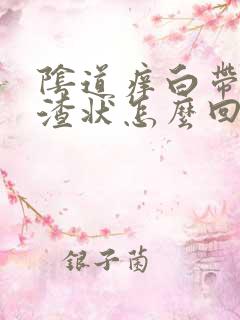 陰道痒白帶
渣狀怎麼回
銀子菌